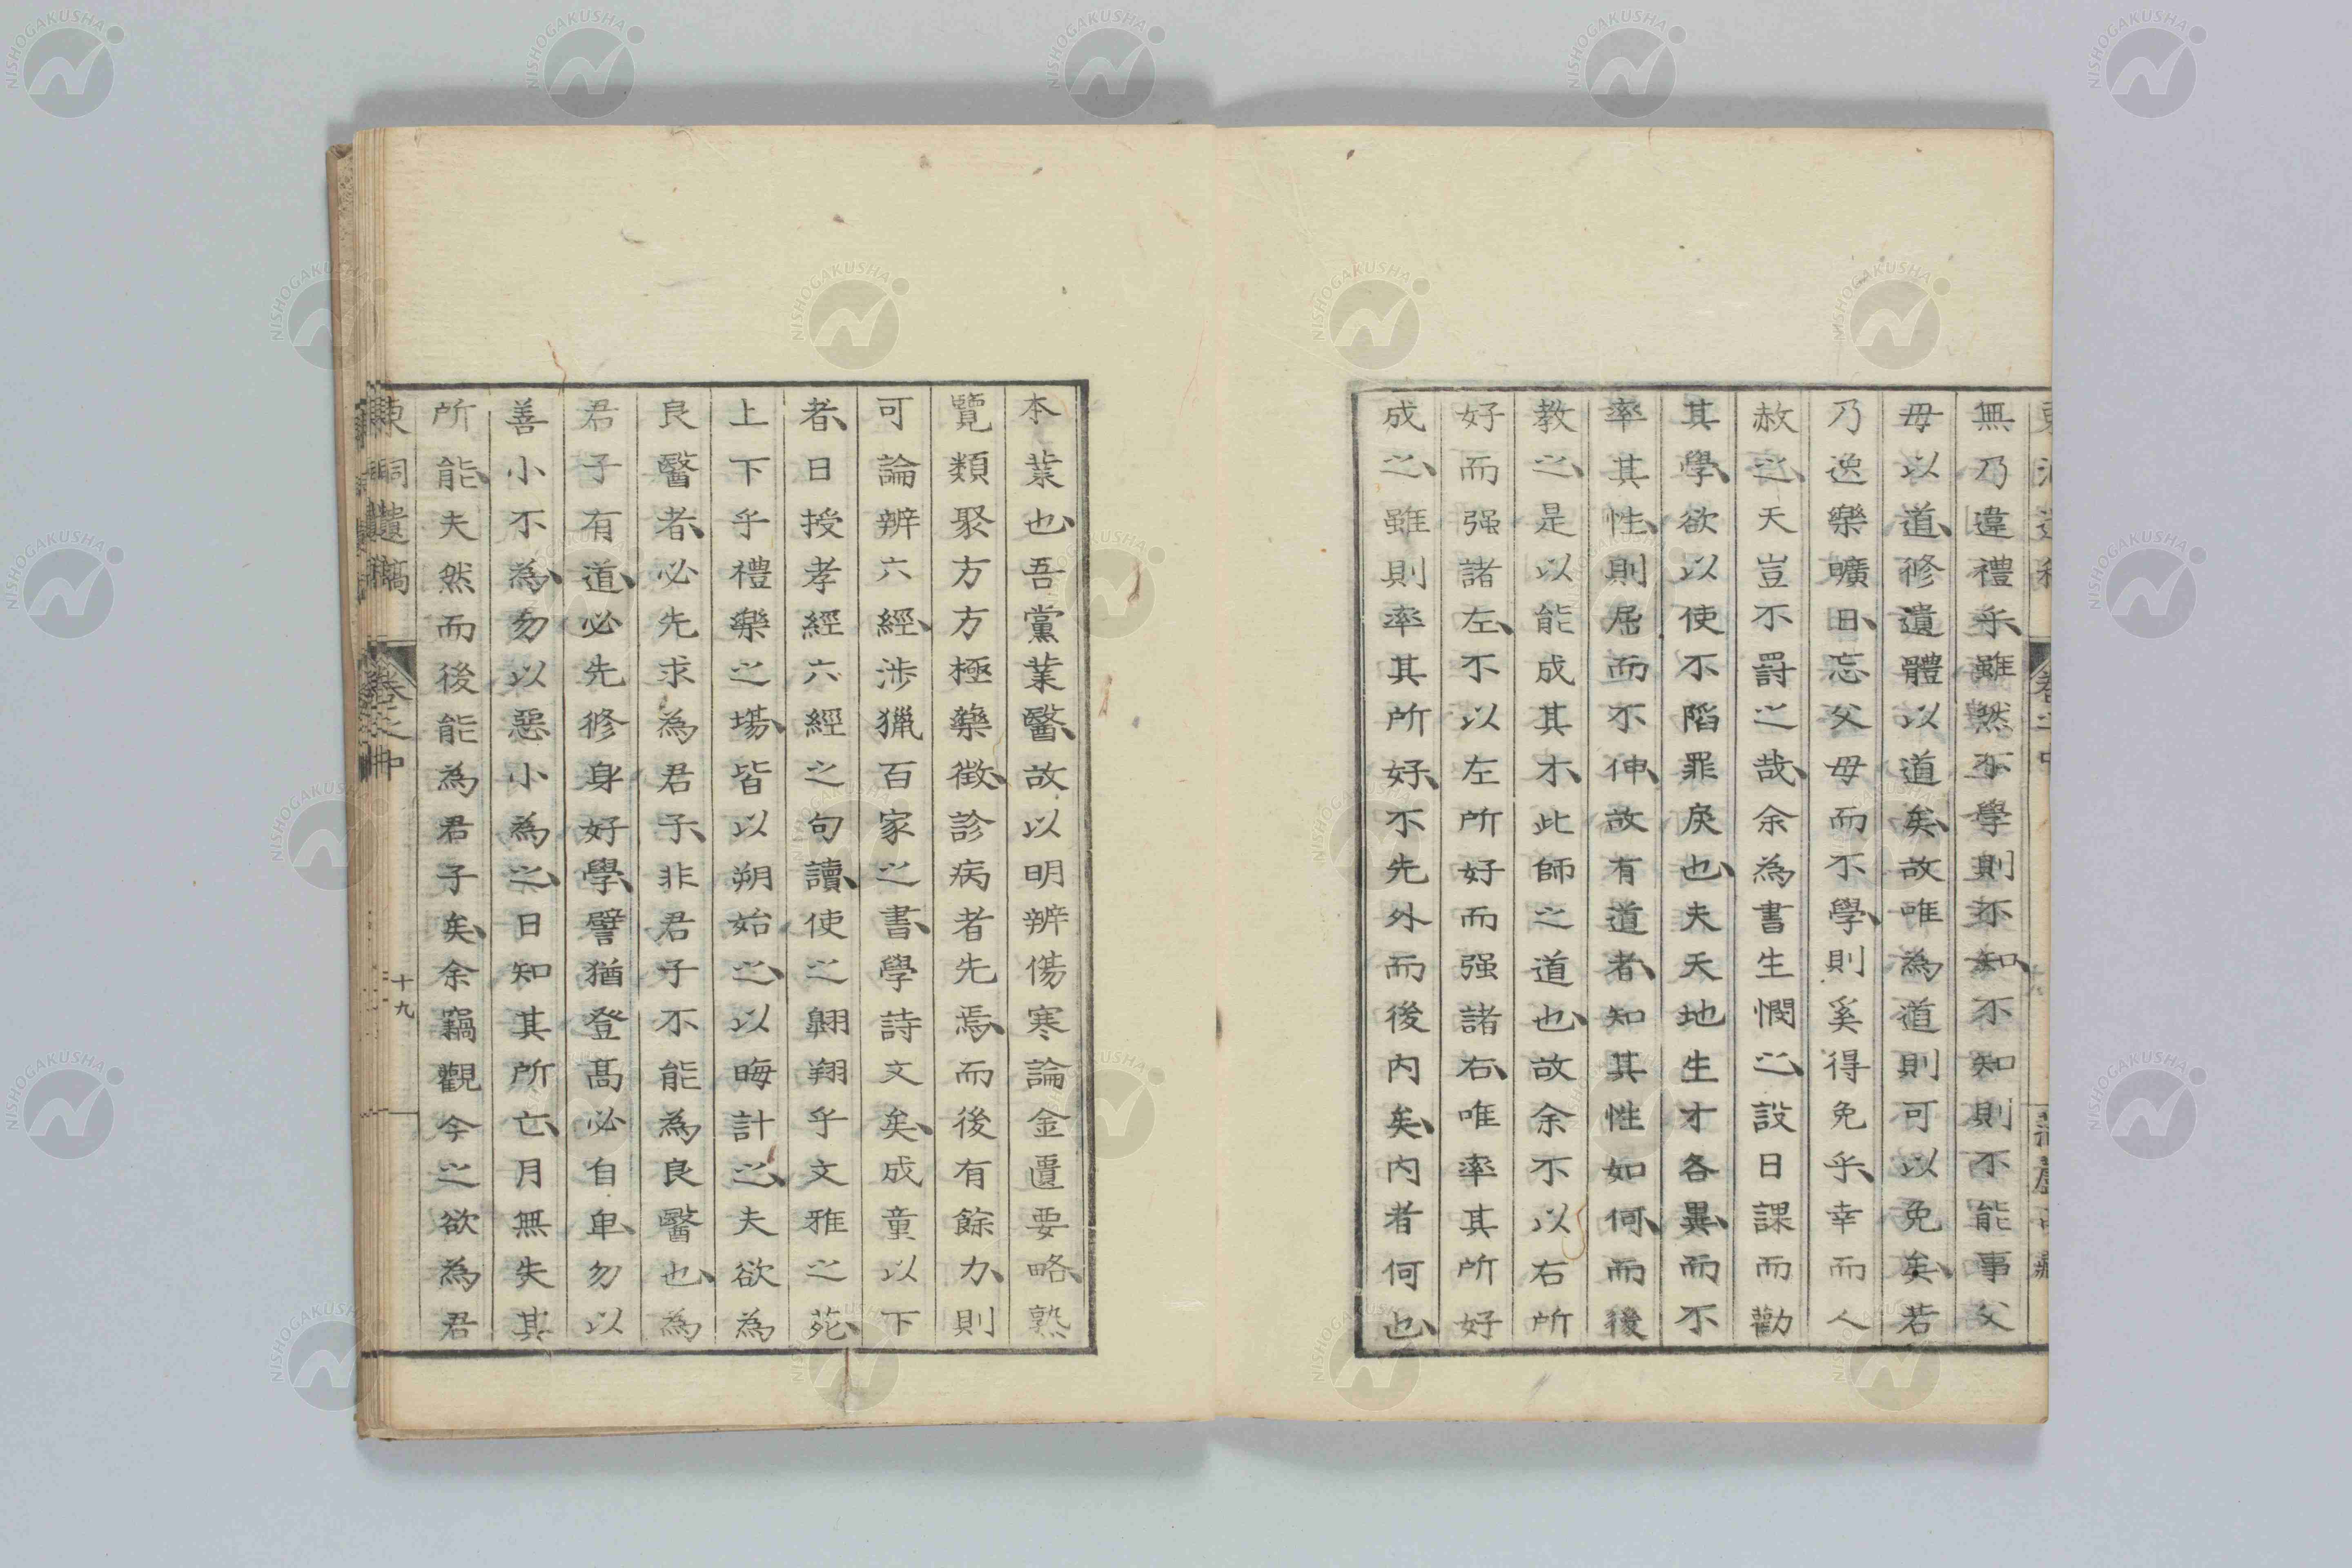 無乃違禮乎、雖然不學則不知、不知則不能事父
毋以道、修遺體以道矣、故唯為道則可以免矣、若
乃逸樂曠日、忘父毋而不學、則奚得免乎、幸而人
赦之、天豈不罸之哉、余為書生憫之、設日課而勸
其學、欲以使不陷罪戾也、夫天地生才各異、而不
率其性、則屈而不伸、故有道者、知其性如何、而後
教之、是以能成其才、此師之道也、故余不以右所
好而强諸左、不以左所好而强諸右、唯率其所好
成之、雖則率其所好、不先外而後内矣、内者何也、
本業也、吾黨業醫、故以明辨傷寒論金匱要略、熟
覽類聚方方極藥徵、診病者先焉、而後有餘力、則
可論辨六經、涉獵百家之書、學詩文矣、成童以下
者、日授孝經六經之句讀、使之翺翔乎文雅之苑、
上下乎禮樂之場、皆以朔始之、以晦計之、夫欲為
良醫者、必先求為君子、非君子不能為良醫也、為
君子有道、必先修身好學、譬猶登髙必自卑、勿以
善小不為、勿以惡小為之、日知其所亡、月無失其
所能、夫然而後能為君子矣、余竊觀今之欲為君
東洞遺稿 卷之中 十九
NISHOGAKUSHA